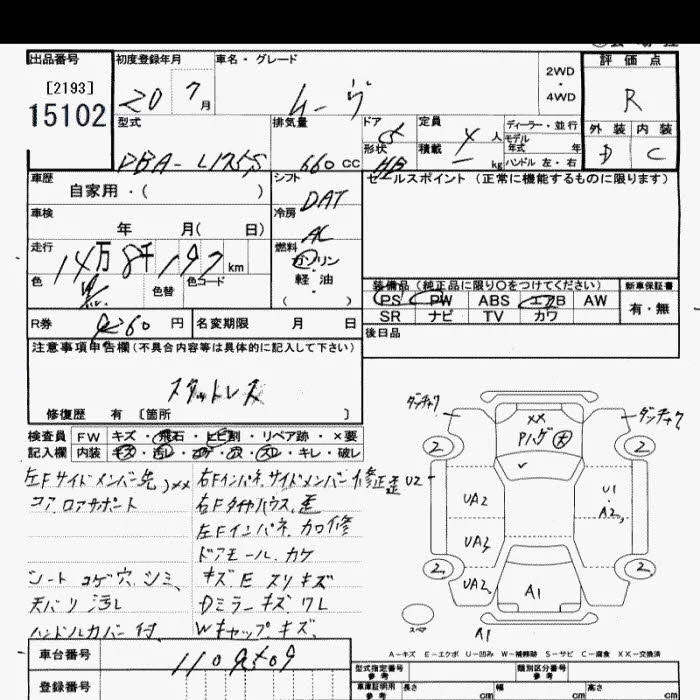 出品番号 初度登録年月 車名・グレード 2WD 評価点
[2193] ・
15102 20 7 月 ムーヴ 4WD R
型式 排気量 ドア 定員 ディーラー・並行 外装 内装
DBA- L175S 660 cc 5 4 人 モデル年式 年 D C
形状 HB 積載 kg ハンドル 左・右
車歴 シフト セールスポイント (正常に機能するものに限ります)
自家用・( ) DAT
車検 冷房
年 月( 日) AC
走行 燃料
14万 8千 197 km ガソリン
色 色替 色コード ・
軽油
( )
装備品 (純正品に限り○をつけてください) 新車保証書
PS PW ABS エアB AW 有・無
SR ナビ TV カワ
R券 円 名変期限 月 日 後日品
注意事項申告欄(不具合内容等は具体的に記入して下さい)
スタットレス
修復歴 有 [箇所 ]
検査員 FW キズ・飛石・ヒビ割・リペア跡・×要
記入欄 内装 キズ・汚レ・コゲ・穴・スレ・キレ・破レ
左Fサイドメンバー先 XX 右Fインパネ、サイドメンバー修正歪
コア、ロアサポート 右Fタイヤハウス、歪
左Fインパネ、カロ修
ドアモール、カケ
シート コゲ穴、シミ、 キズ E スリキズ
天バリ 汚レ Dミラーキズ、ワレ
ハンドルカバー付、 Wキャップキズ、
ダンチャク ダンチャク
XX
Pハゲ 大
2 2
U2
UA2 U1
・
A2
UA2
2 2
UA2 A1
スペア
A1
A-キズ E-エクボ U-凹み W-補修跡 S-サビ C-腐食 XX-交換済
車台番号
登録番号
型式指定番号 参考 類別区分番号 参考
車庫証明用 参考 長さ cm 幅 cm 高さ cm